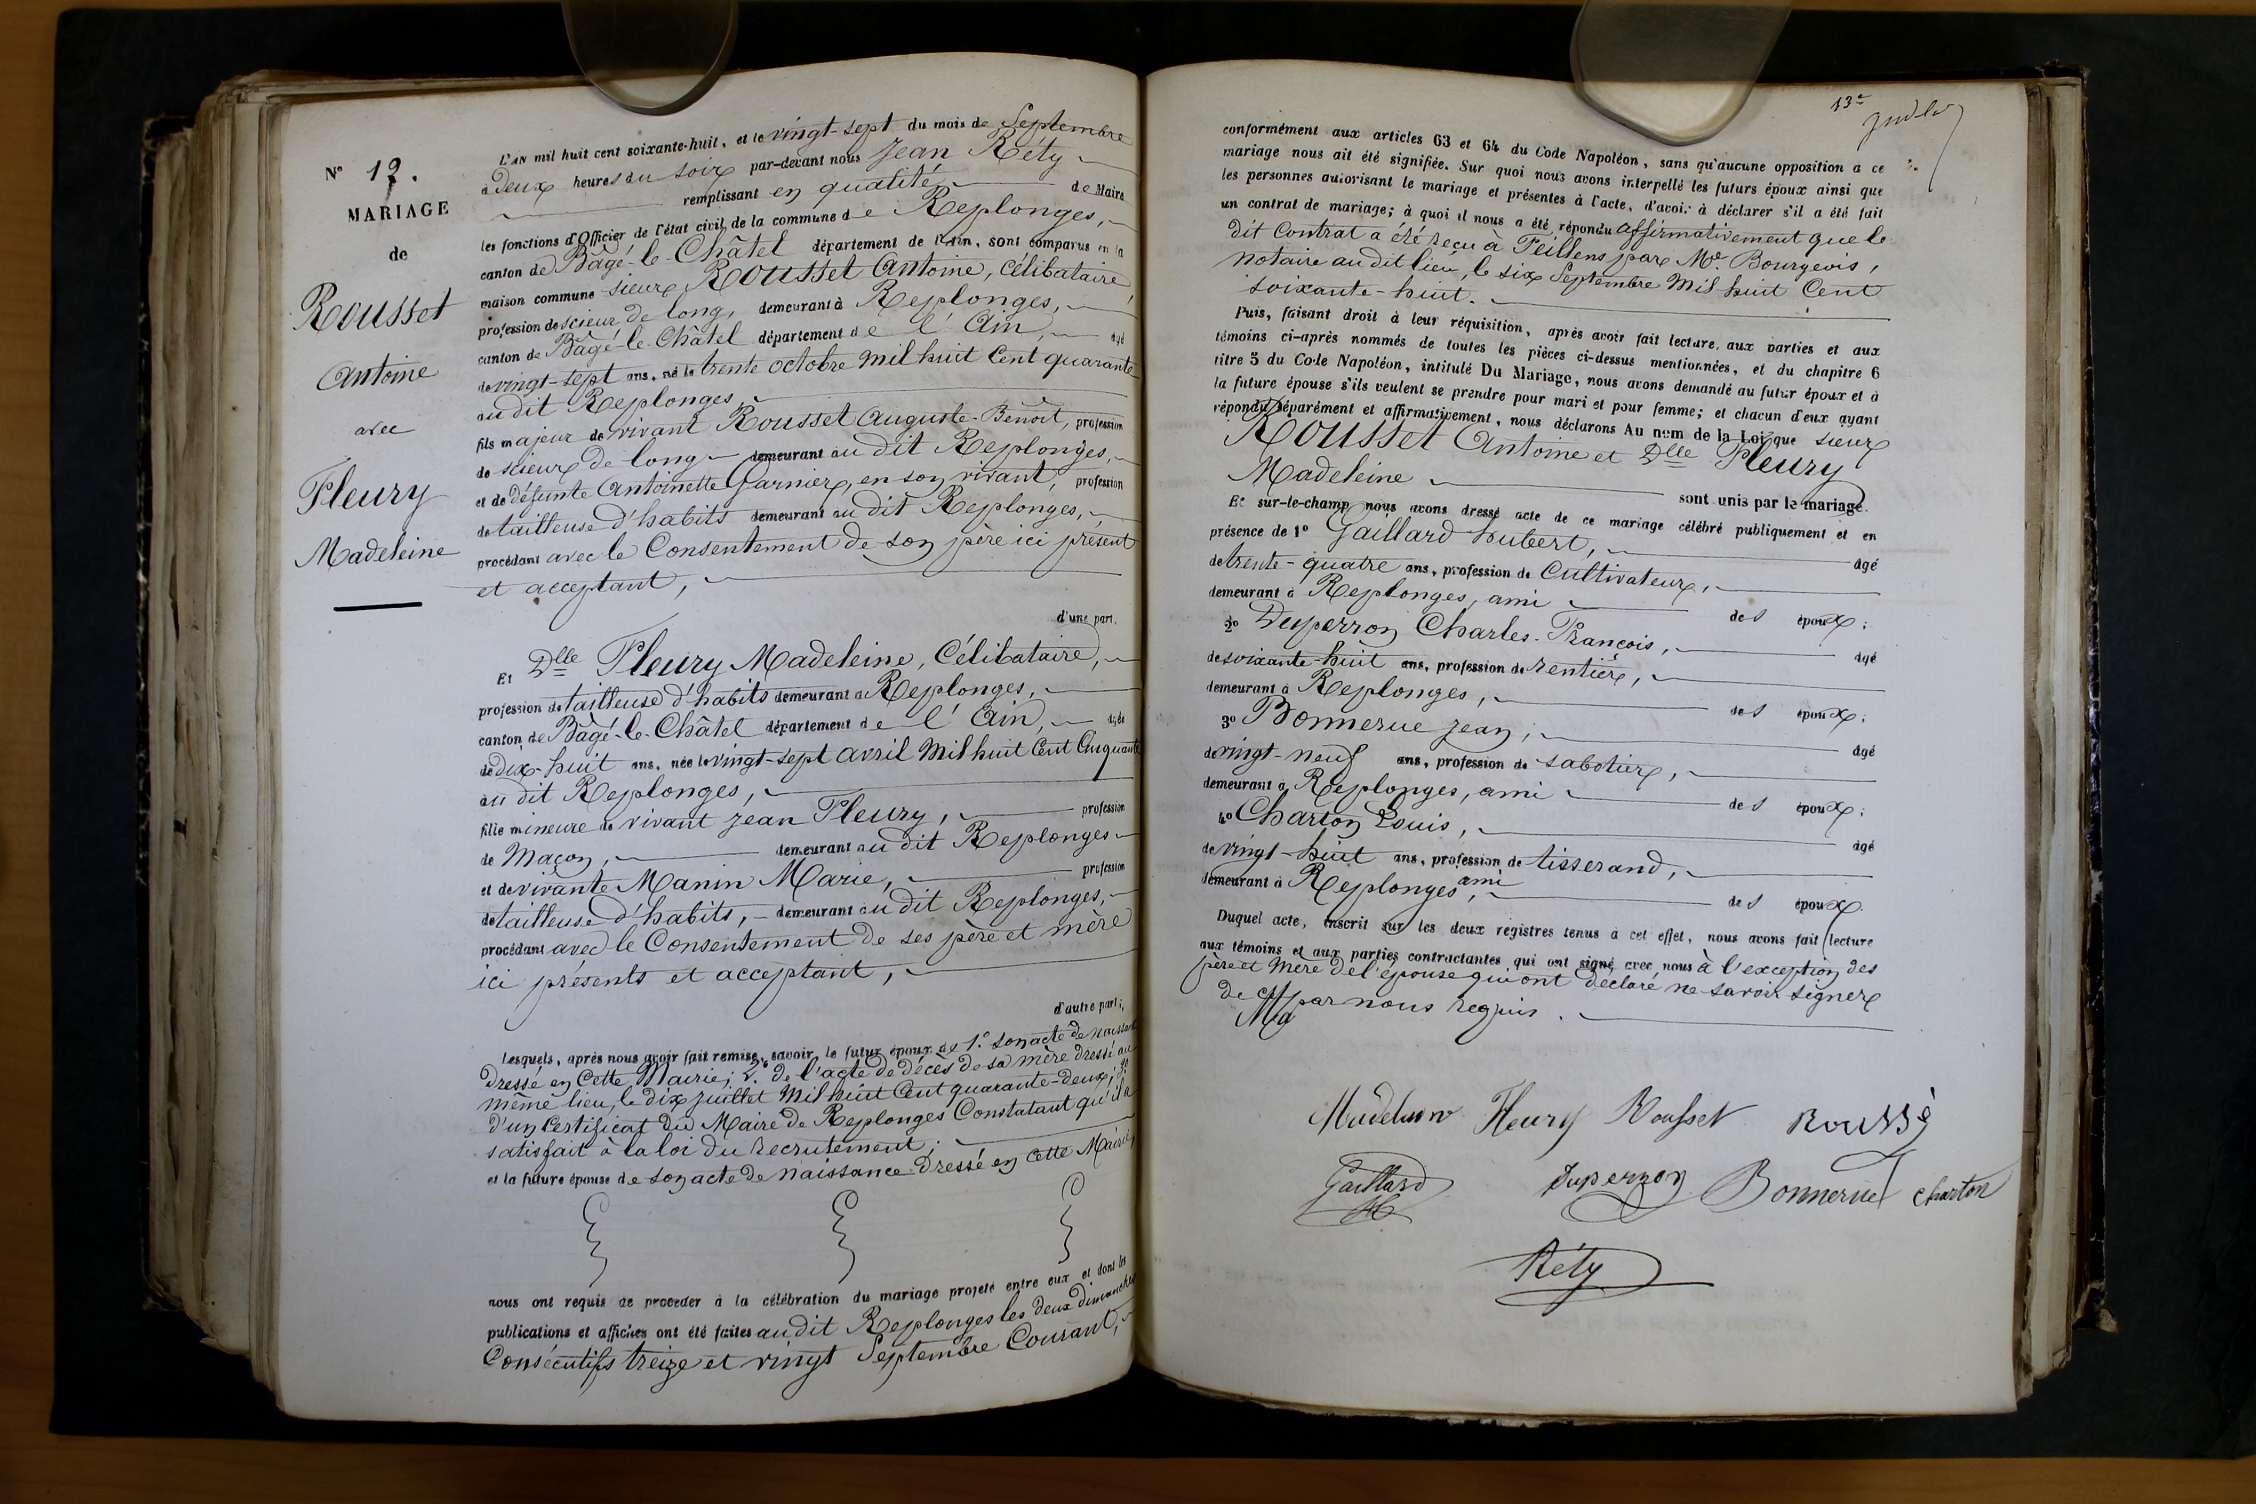 N° 12.
MARIAGE
de
Rousset
Antoine
avec
Fleury
Madeleine
L'AN mil huit cent soixante-huit, et le vingt-sept du mois de Septembre
à deux heures du soir par-devant nous Jean Réty
remplissant en qualité de Maire
les fonctions d'Officier de l'état civil de la commune de Replonges,
canton de Bâgé-le-Châtel département de l'Ain, sont comparus en la
maison commune sieur Rousset Antoine, célibataire,
profession de scieur de long, demeurant à Replonges,
canton de Bâgé-le-Châtel département de l'Ain, agé
de vingt-sept ans, né le trente octobre mil huit cent quarante
au dit Replonges,
fils majeur de vivant Rousset Auguste-Benoît, profession
de scieur de long demeurant au dit Replonges,
et de défunte Antoinette Garnier, en son vivant, profession
de tailleuse d'habits demeurant au dit Replonges,
procédant avec le Consentement de son père ici présent
et acceptant,
d'une part.
Et Dlle Fleury Madeleine, Célibataire,
profession de tailleuse d'habits demeurant à Replonges,
canton de Bâgé-le-Châtel département de l'Ain, agée
de dix-huit ans, née le vingt-sept avril mil huit cent cinquante
au dit Replonges,
fille mineure de vivant Jean Fleury, profession
de Maçon, demeurant au dit Replonges
et de vivante Manin Marie, profession
de tailleuse d'habits, demeurant au dit Replonges,
procédant avec le Consentement de ses père et mère
ici présents et acceptant,
d'autre part;
Lesquels, après nous avoir fait remise, savoir, le futur époux de 1° son acte de naissance
dressé en cette Mairie; 2° de l'acte de décès de sa mère dressé au
même lieu, le dix juillet mil huit cent quarante-deux; 3°
d'un certificat du Maire de Replonges Constatant qu'il a
satisfait à la loi du recrutement;
et la future épouse de son acte de naissance dressé en cette Mairie
nous ont requis de procéder à la célébration du mariage projeté entre eux et dont les
publications et affiches ont été faites au dit Replonges les deux dimanches
Consécutifs treize et vingt Septembre Courant,
13e
conformément aux articles 63 et 64 du Code Napoléon, sans qu'aucune opposition a ce
mariage nous ait été signifiée. Sur quoi nous avons interpellé les futurs époux ainsi que
les personnes autorisant le mariage et présentes à l'acte, d'avoir à déclarer s'il a été fait
un contrat de mariage; à quoi il nous a été répondu affirmativement que le
dit Contrat a été reçu à Feillens par Me Bourgeois,
notaire au dit lieu, le six Septembre mil huit cent
soixante-huit.
Puis, faisant droit à leur réquisition, après avoir fait lecture, aux parties et aux
témoins ci-après nommés de toutes les pièces ci-dessus mentionnées, et du chapitre 6
titre 5 du Code Napoléon, intitulé Du Mariage, nous avons demandé au futur époux et à
la future épouse s'ils veulent se prendre pour mari et pour femme; et chacun d'eux ayant
répondu séparément et affirmativement, nous déclarons Au nom de la Loi que sieur
Rousset Antoine et Dlle Fleury
Madeleine sont unis par le mariage.
Et sur-le-champ nous avons dressé acte de ce mariage célébré publiquement et en
présence de 1° Gaillard hubert, agé
de trente-quatre ans, profession de Cultivateur,
demeurant à Replonges, ami des époux;
2° Duperron Charles-François, agé
de soixante-huit ans, profession de rentier,
demeurant à Replonges, des époux;
3° Bonnerue Jean, agé
de vingt-neuf ans, profession de sabotier,
demeurant à Replonges, ami des époux;
4° Charton Louis, agé
de vingt-huit ans, profession de tisserand,
demeurant à Replonges, ami des époux.
Duquel acte, inscrit sur les deux registres tenus à cet effet, nous avons fait lecture
aux témoins et aux parties contractantes qui ont signé avec nous à l'exception des
père et mère de l'épouse qui ont déclaré ne savoir signer
de ce par nous requis.
Ma
Madeleine Fleury Rousset Roussé
Gaillard H Duperron Bonnerue Charton
Réty